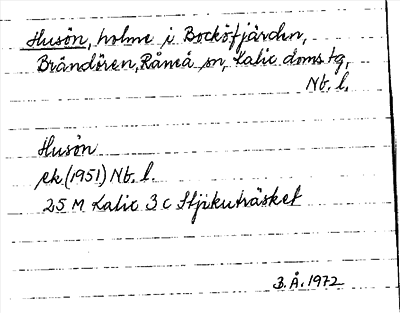 Husön, holme i Bocköfjärden,
Brändören, Råneå sn, Kalix doms tg,
Nb. l.
Husön
ek. (1951) Nb. l.
25 M Kalix 3 c
B.Å. 1972